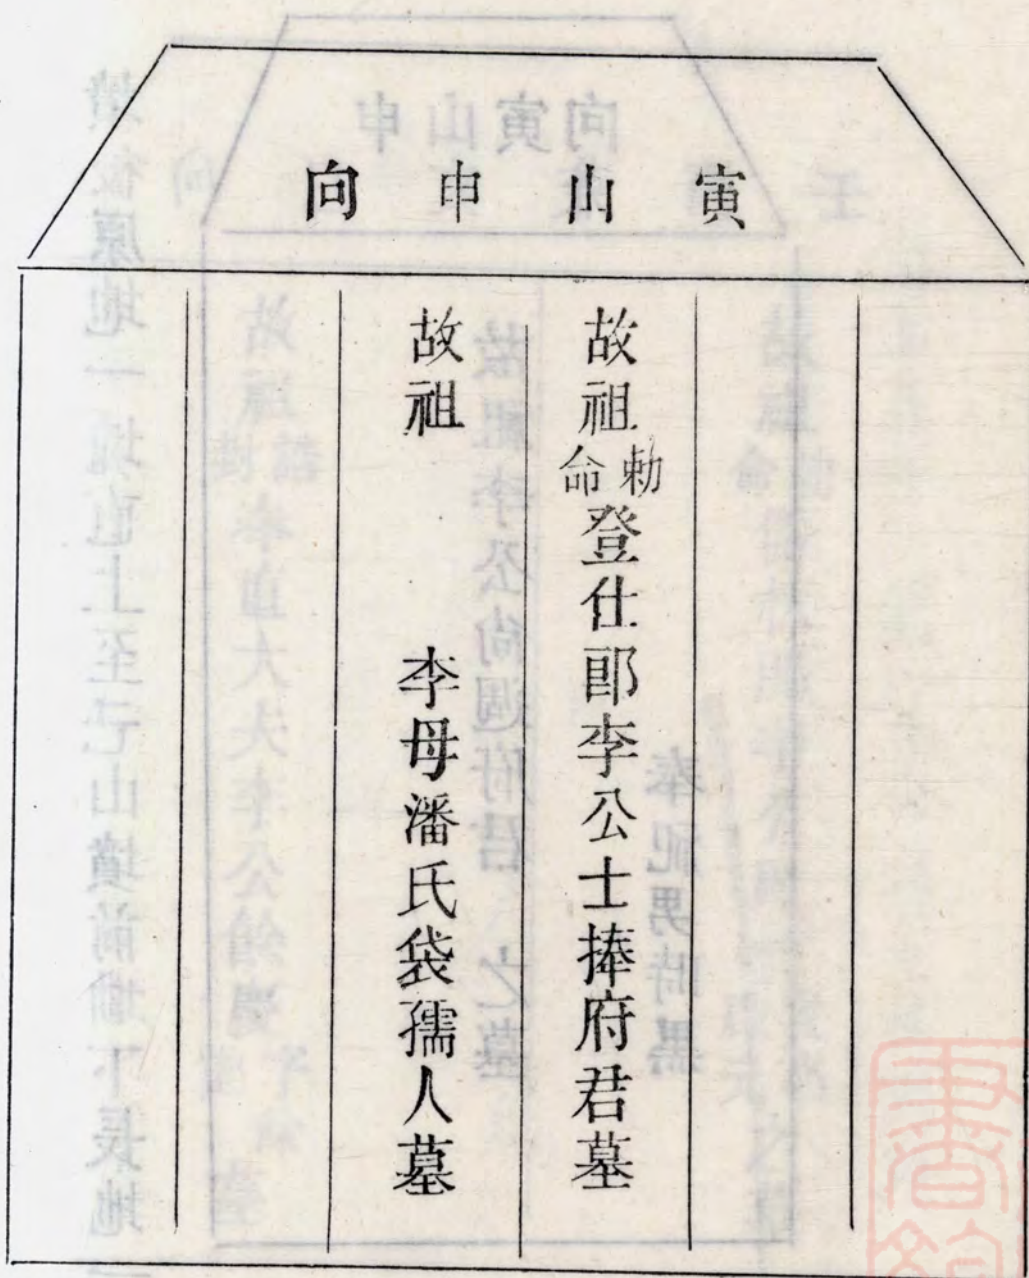 寅山申向
故祖勅命登仕郎李公士捧府君墓
故祖 李母潘氏袋孺人墓